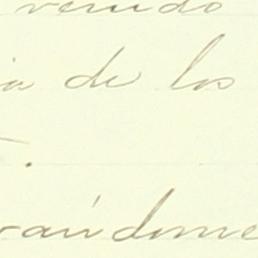 venido
ia de los
.
rándome